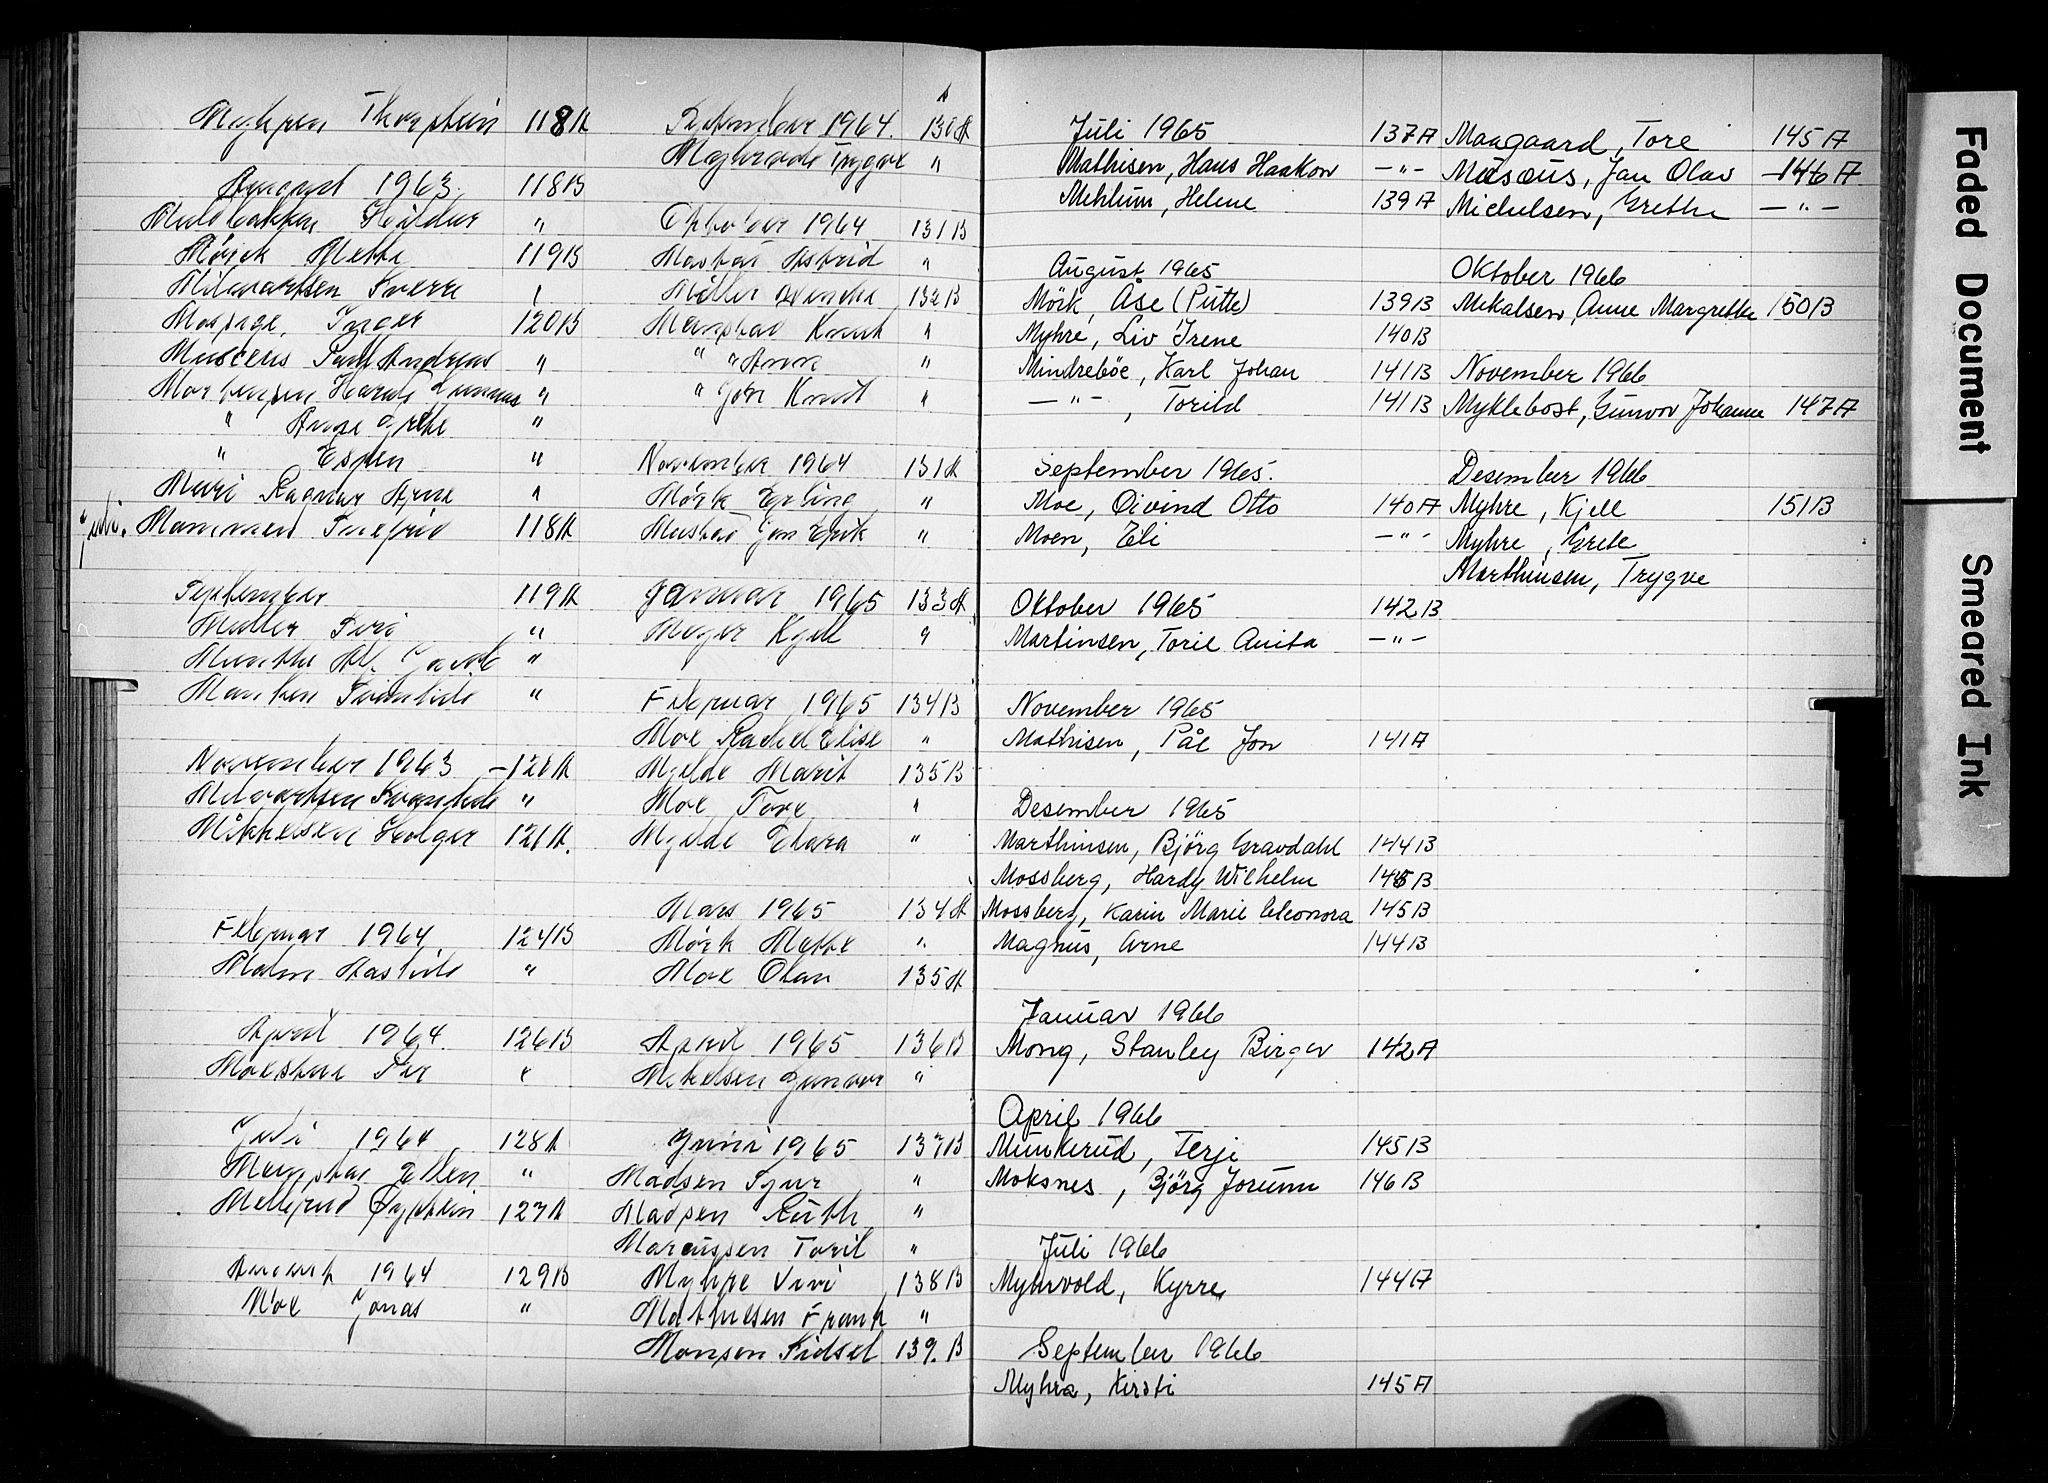 Myhren Thorstein 118A
August 1963. 118B
Hildur "
Mørck Mette 119B
Sverre
Inger 120B
Andreas "
"
" Grethe "
" Espen "
Ragnar Arne "
Juli. 118A
September 119A
Møller Siri "
"
"
November 1963 – 120A
"
Mikkelsen Holger 121A.
Februar 1964. 124B
Malm "
April 1964 126B
Per "
Juli 1964 128A
Ellen "
127A
August 1964 129B
Moe Jonas "
September 1964. 130A
Trygve "
Oktober 1964 131B
Mastad Astrid "
Møller 132B
Knut "
" " Anna "
" Knut "
November 1964 131A
Mørk Erling "
Mustad Jan Erik "
Januar 1965 133A
Meyer Kjell "
Februar 1965 134B
Moe Rachel Elise "
Mjelde Marit 135B
Moe Tove "
Mjelde Klara "
Mars 1965 134A
Mørk Mette "
Moe Olav 135A
April 1965 136B
Mikelsen Gunvor "
Juni 1965 137B
Madsen "
Madsen Ruth "
Marcussen Toril "
Myhre Vivi 138B
Mathiesen Frank "
Monsen Sidsel 139.B
Juli 1965 137A
Mathisen, Hans Haakon – " –
Mehlum, Helene 139A
August 1965
Mörk, Åse (Putte) 139B
Myhre, Liv Irene 140B
Mindreböe, Karl Johan 141B
– " – , Torild 141B
September 1965.
Moe, Öivind Otto 140A
Moen, Eli – " –
Oktober 1965 142B
Martinsen, Toril Anita – " –
November 1965
Mathisen, Pål Jon 141A
Desember 1965
Marthinsen, Björg Gravdahl 144B
Mossberg, Hardy Wilhelm 145B
Mossberg, Karin Marie Eleonora 145B
Magnus, Arne 144B
Januar 1966
Mong, Stanley Birger 142A
April 1966
Munkerud, Terje 145B
Moksnes, Björg Jorunn 146B
Juli 1966
Myhrvold, Kyrre 144A
September 1966
Myhra, Kirsti 145A
Maagaard, Tore 145A
Musæus, Jan Olav – 146A
Michelsen, Grethe – " –
Oktober 1966
Mikalsen, Anne Margrethe 150B
November 1966
Myklebost, Gunvor Johanne 147A
Desember 1966
Myhre, Kjell 151B
Myhre, Grete
Marthinsen, Trygve
Faded Document
Smeared Ink